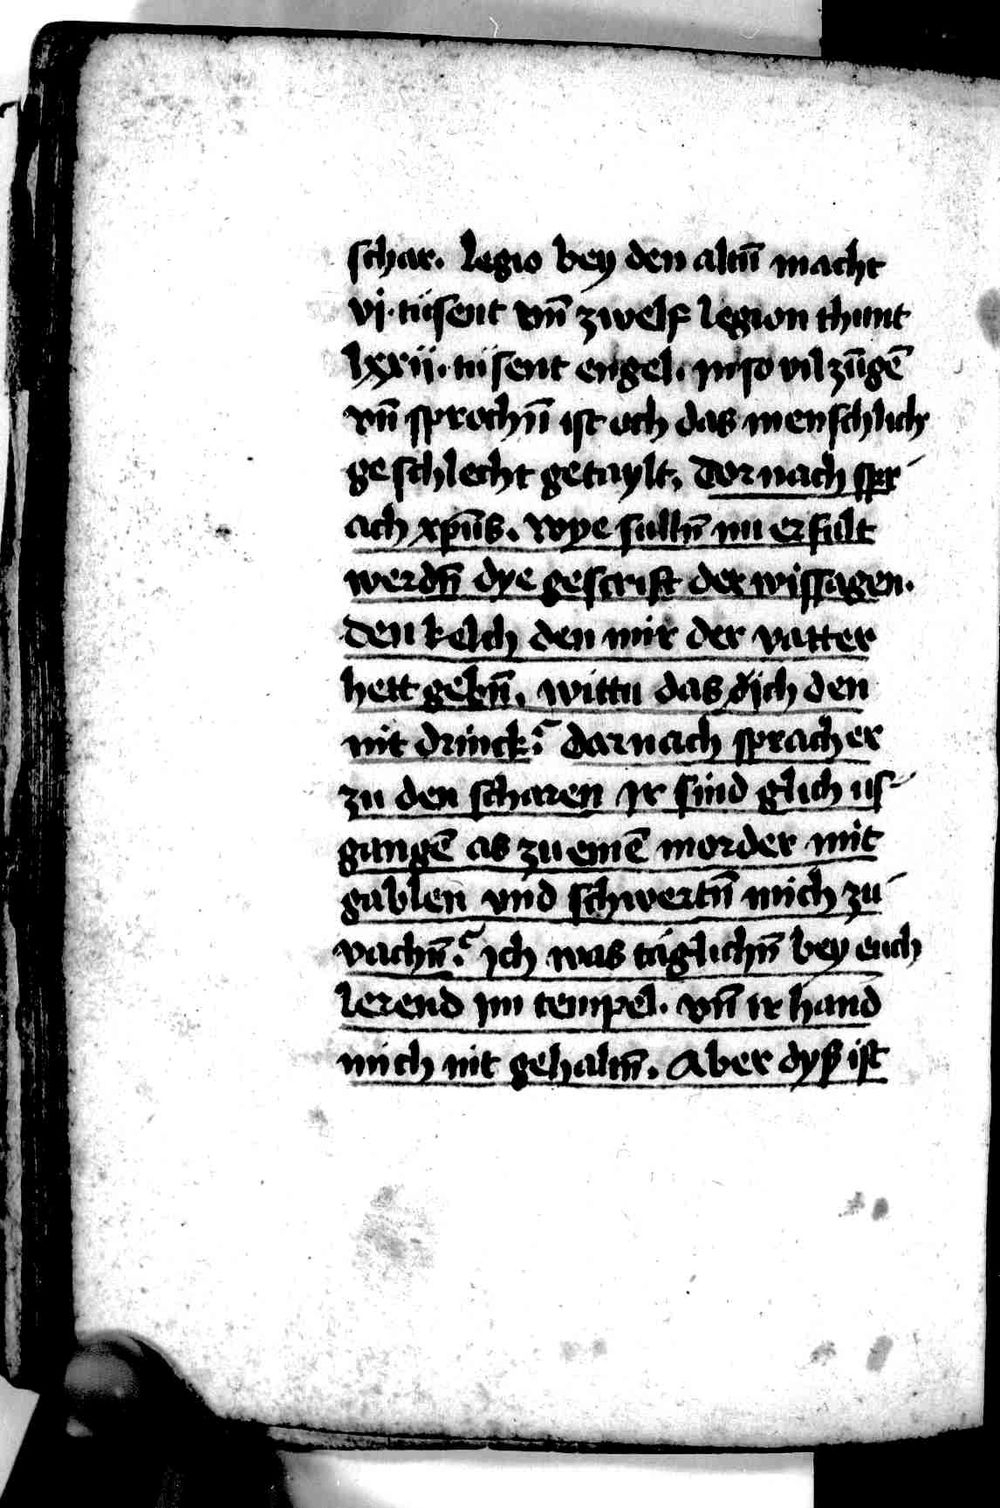 schar. legio bey den altn̄ macht
vj. tusent vn̄ zwelf legion thunt
lxxij. tusent engel. jn so vil zūgē
vn̄ sprochn̄ ist och das menschlich
geschlecht getaylt. Dornach spr
ach xpūs. wye sulln̄ nu erfult
werdn̄ dye gescrift der wissagen.
den kelch den mir der vatter
hett gebn̄. wittu das ich den
nit drinck? darnach sprach er
zu den scharen jr sind glich us
gangē as zu einē morder mit
gablen vnd schwertn̄ mich zu
vachn̄? jch was täglichn̄ bey euch
lerend jm tempel. vn̄ ir hand
mich nit gehaltn̄. Aber dyß ist